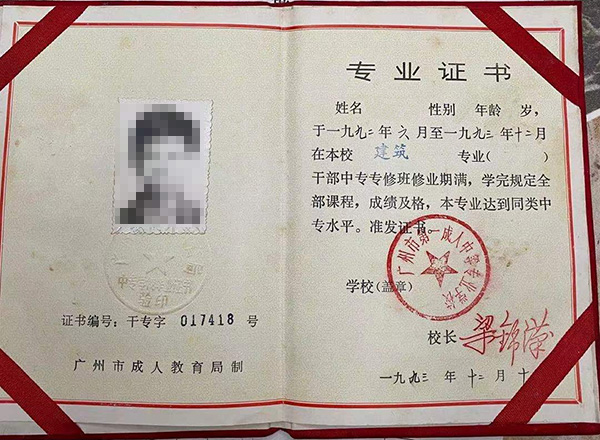 证书编号：干专字 017418 号
广州市成人教育局制
专业证书
姓名 性别 年龄 岁，
于一九九二年六月至一九九三年十二月
在本校 建筑 专业（ ）
干部中专专修班修业期满，学完规定全
部课程，成绩及格，本专业达到同类中
专水平。准发证书。
广州市第一成人中等专业学校
学校(盖章)
校长
一九九三 年 十二 月 十